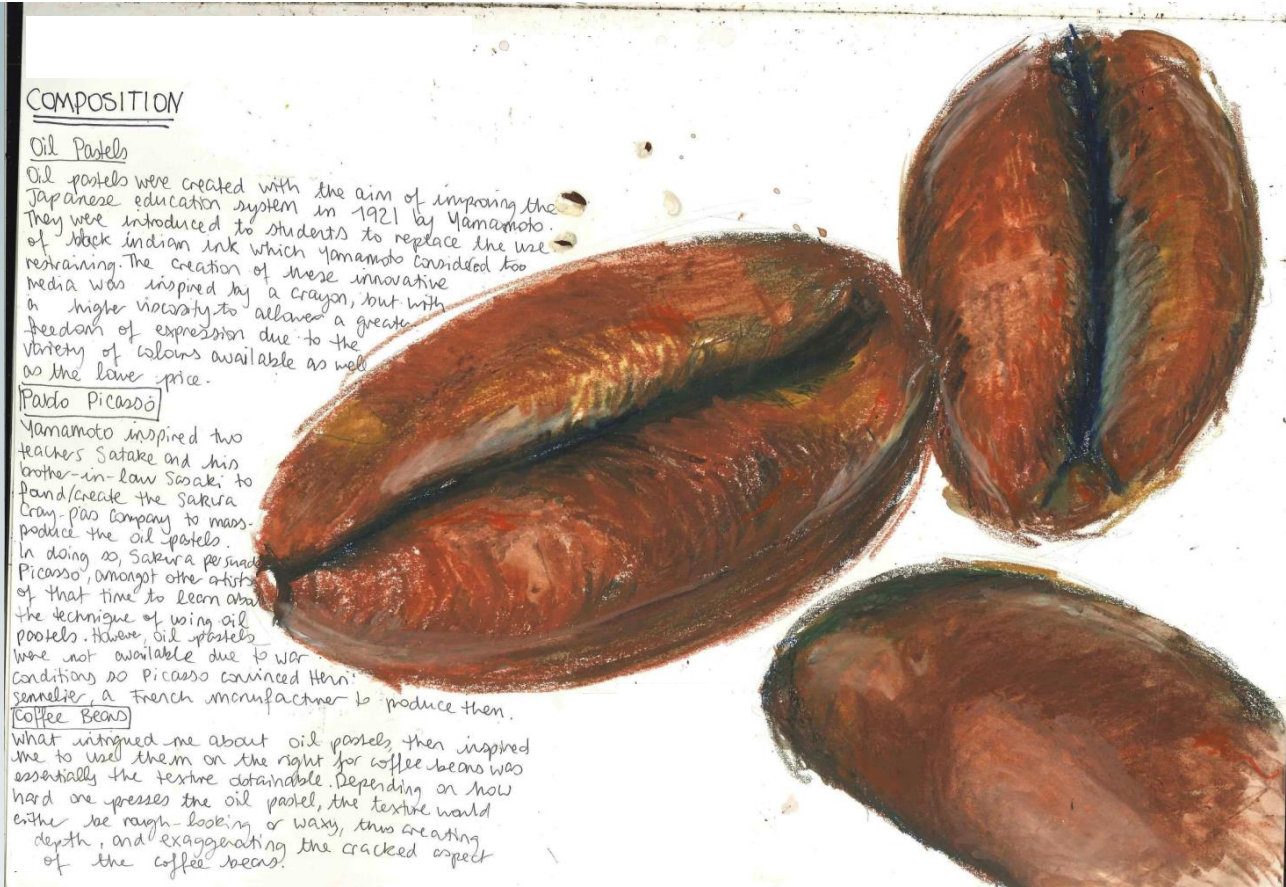 COMPOSITION
Oil Pastels
Oil pastels were created with the aim of improving the
Japanese education system in 1921 by Yamamoto.
They were introduced to students to replace the use
of black indian ink which Yamamoto considered too
restraining. The creation of these innovative
media was inspired by a crayon, but with
a higher viscosity to allowes a greater
freedom of expression due to the
variety of colours available as well
as the lower price.
Pablo Picasso
Yamamoto inspired two
teachers Satake and his
brother-in-law Sasaki to
found/create the Sakura
Cray-pas company to mass-
produce the oil pastels.
In doing so, Sakura persuade
Picasso, amongst other artists
of that time to learn about
the technique of using oil
pastels. However, oil pastels
were not available due to war
conditions so Picasso convinced Henri
Sennelier, a French manufacturer to produce them.
Coffee Beans
What intrigued me about oil pastels, then inspired
me to use them on the right for coffee beans was
essentially the texture obtainable. Depending on how
hard one presses the oil pastel, the texture would
either be rough-looking or waxy, thus creating
depth, and exaggerating the cracked aspect
of the coffee beans.